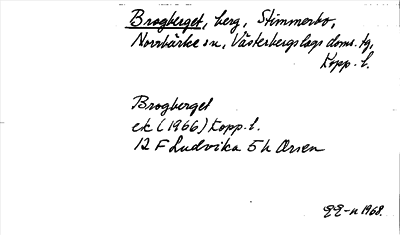 Brogberget, berg, Stimmerbo,
Norrbärke sn, Västerbergslags doms. tg,
Kopp. l.
Brogberget
ek (1966) Kopp. l.
12 F Ludvika 5 h Orsen
1968.